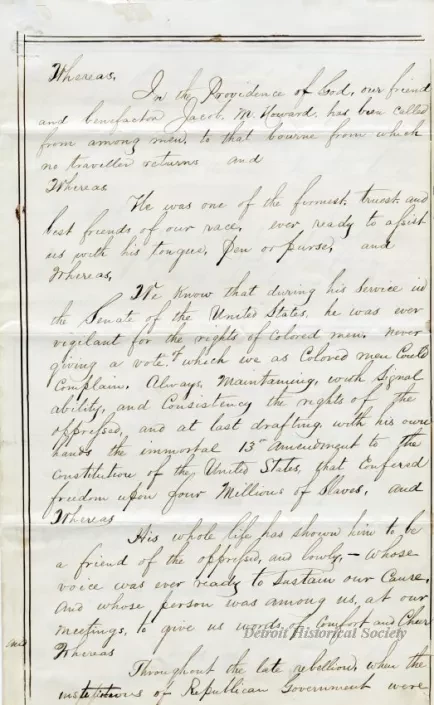 Whereas,
In the Providence of God, our friend
and benefactor Jacob. M. Howard. has been called
from among men, to that bourne from which
no traveller returns and
Whereas
He was one of the firmest, truest and
best friends of our race, ever ready to assist
us with his tongue, Pen or purse, and
Whereas,
We know that during his service in
the Senate of the United States, he was ever
vigilant for the rights of Colored men. never
giving a vote, of which we as Colored men Could
Complain. Always, Maintaining, with Signal
ability, and Consistency the rights of the
oppressed, and at last drafting with his own
hands the immortal 13th amendment to the
Constitution of the United States, that Conferred
freedom upon four Millions of Slaves, and
Whereas
His whole life has shown him to be
a friend of the oppressed, and lowly, - whose
voice was ever ready to sustain our Cause,
and whose person was among us, at our
meetings, to give us words of Comfort and Cheer
and
Whereas
Detroit Historical Society
Throughout the late rebellion, when the
institutions of Republican Government were